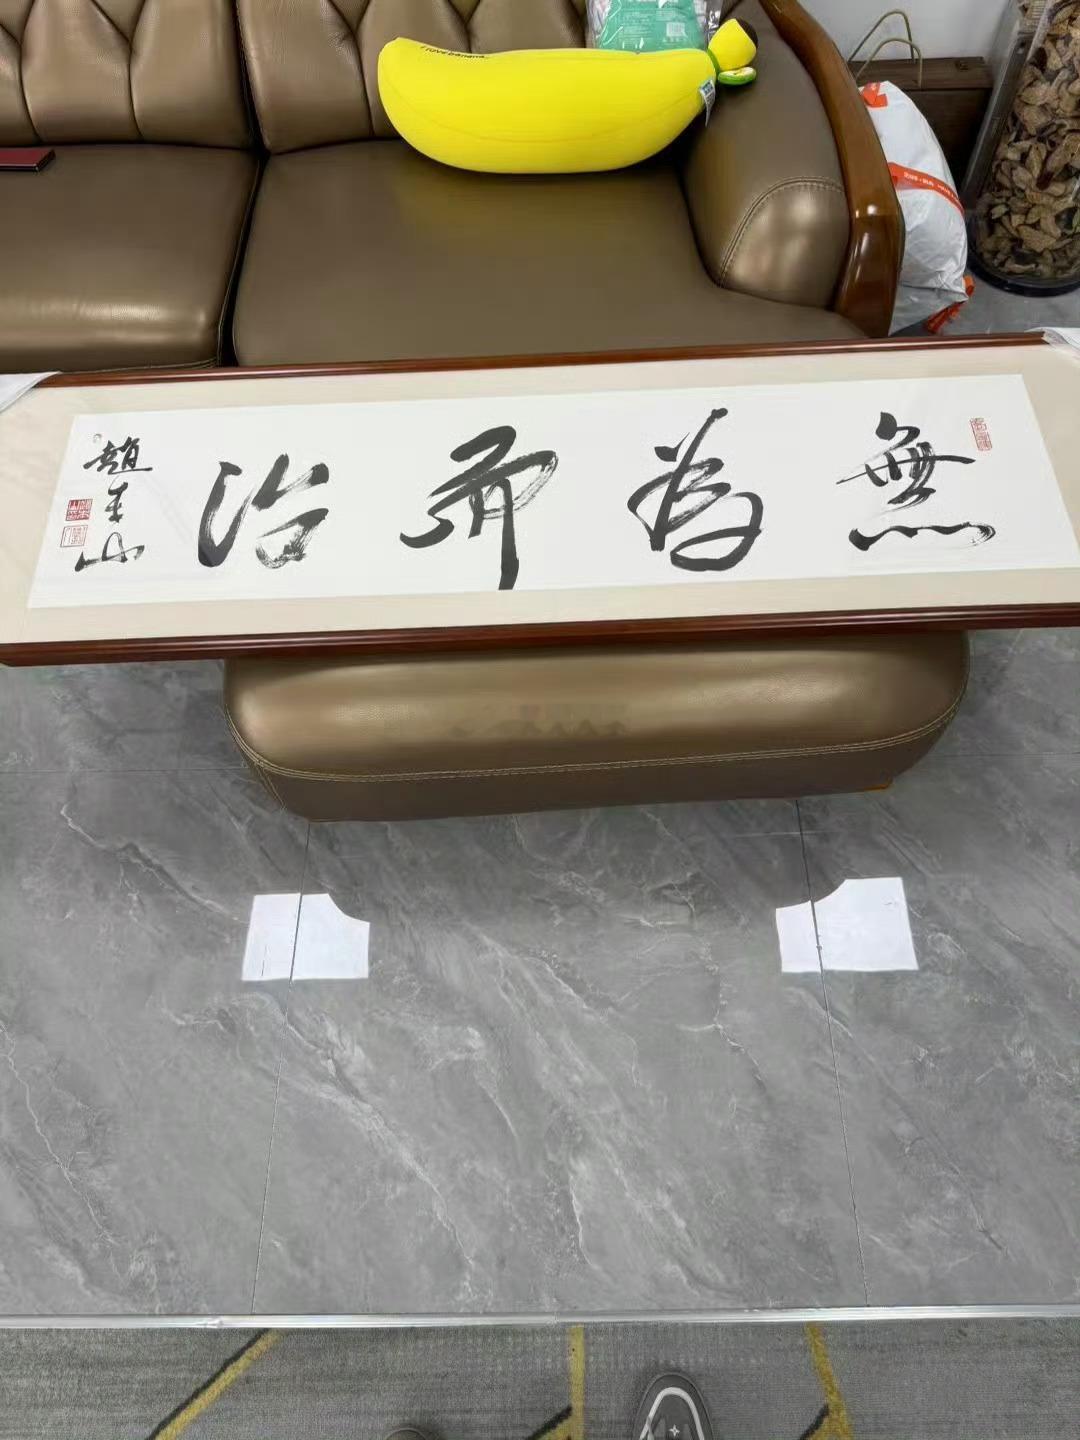 無為而治
趙本山
I love banana